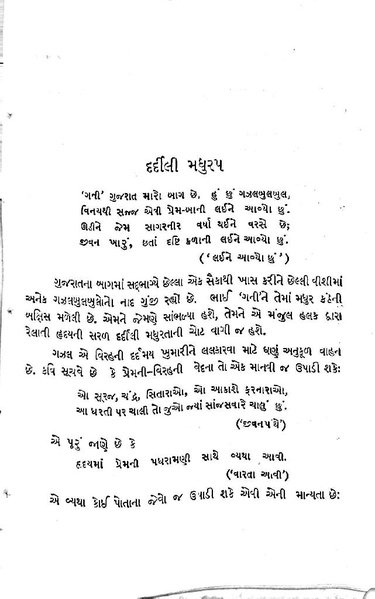 દર્દીલી મધુરપ
'ગની' ગુજરાત મારો બાગ છે, હું છું ગઝલબુલબુલ,
વિનયથી સજ્જ એવી પ્રેમ-બાની લઈને આવ્યો છું.
ઊડીને જેમ સાગરનીર વર્ષા થઈને વરસે છે;
જીવન ખારું, છતાં દૃષ્ટિ કળાની લઈને આવ્યો છું.
('લઈને આવ્યો છું')
ગુજરાતના બાગમાં સદ્ભાગ્યે છેલ્લા એક સૈકાથી ખાસ કરીને છેલ્લી વીશીમાં
અનેક ગઝલબુલબુલોનો નાદ ગુંજી રહ્યો છે. ભાઈ 'ગની'ને તેમાં મધુર કંઠની
બક્ષિસ મળેલી છે. એમને જેમણે સાંભળ્યા હશે, તેમને એ મંજુલ હલક દ્વારા
રેલાતી હૃદયની સરળ દર્દીલી મધુરતાની ચોટ વાગી જ હશે.
ગઝલ એ વિરહની દર્દમય ખુમારીને લલકારવા માટે ઘણું અનુકૂળ વાહન
છે. કવિ સૂચવે છે કે પ્રેમની-વિરહની વેદના તો એક માનવી જ ઉપાડી શકે:
ઓ સૂરજ, ચંદ્ર, સિતારાઓ, ઓ આકાશે ફરનારાઓ,
આ ધરતી પર ચાલી તો જુઓ જ્યાં સાંજસવારે ચાલું છું.
('જીવનપથે')
એ પૂરું જાણે છે કે
હૃદયમાં પ્રેમની પધરામણી સાથે વ્યથા આવી.
('વારતા આવી')
એ વ્યથા કોઈ પોતાના જેવો જ ઉપાડી શકે એવી એની માન્યતા છે: